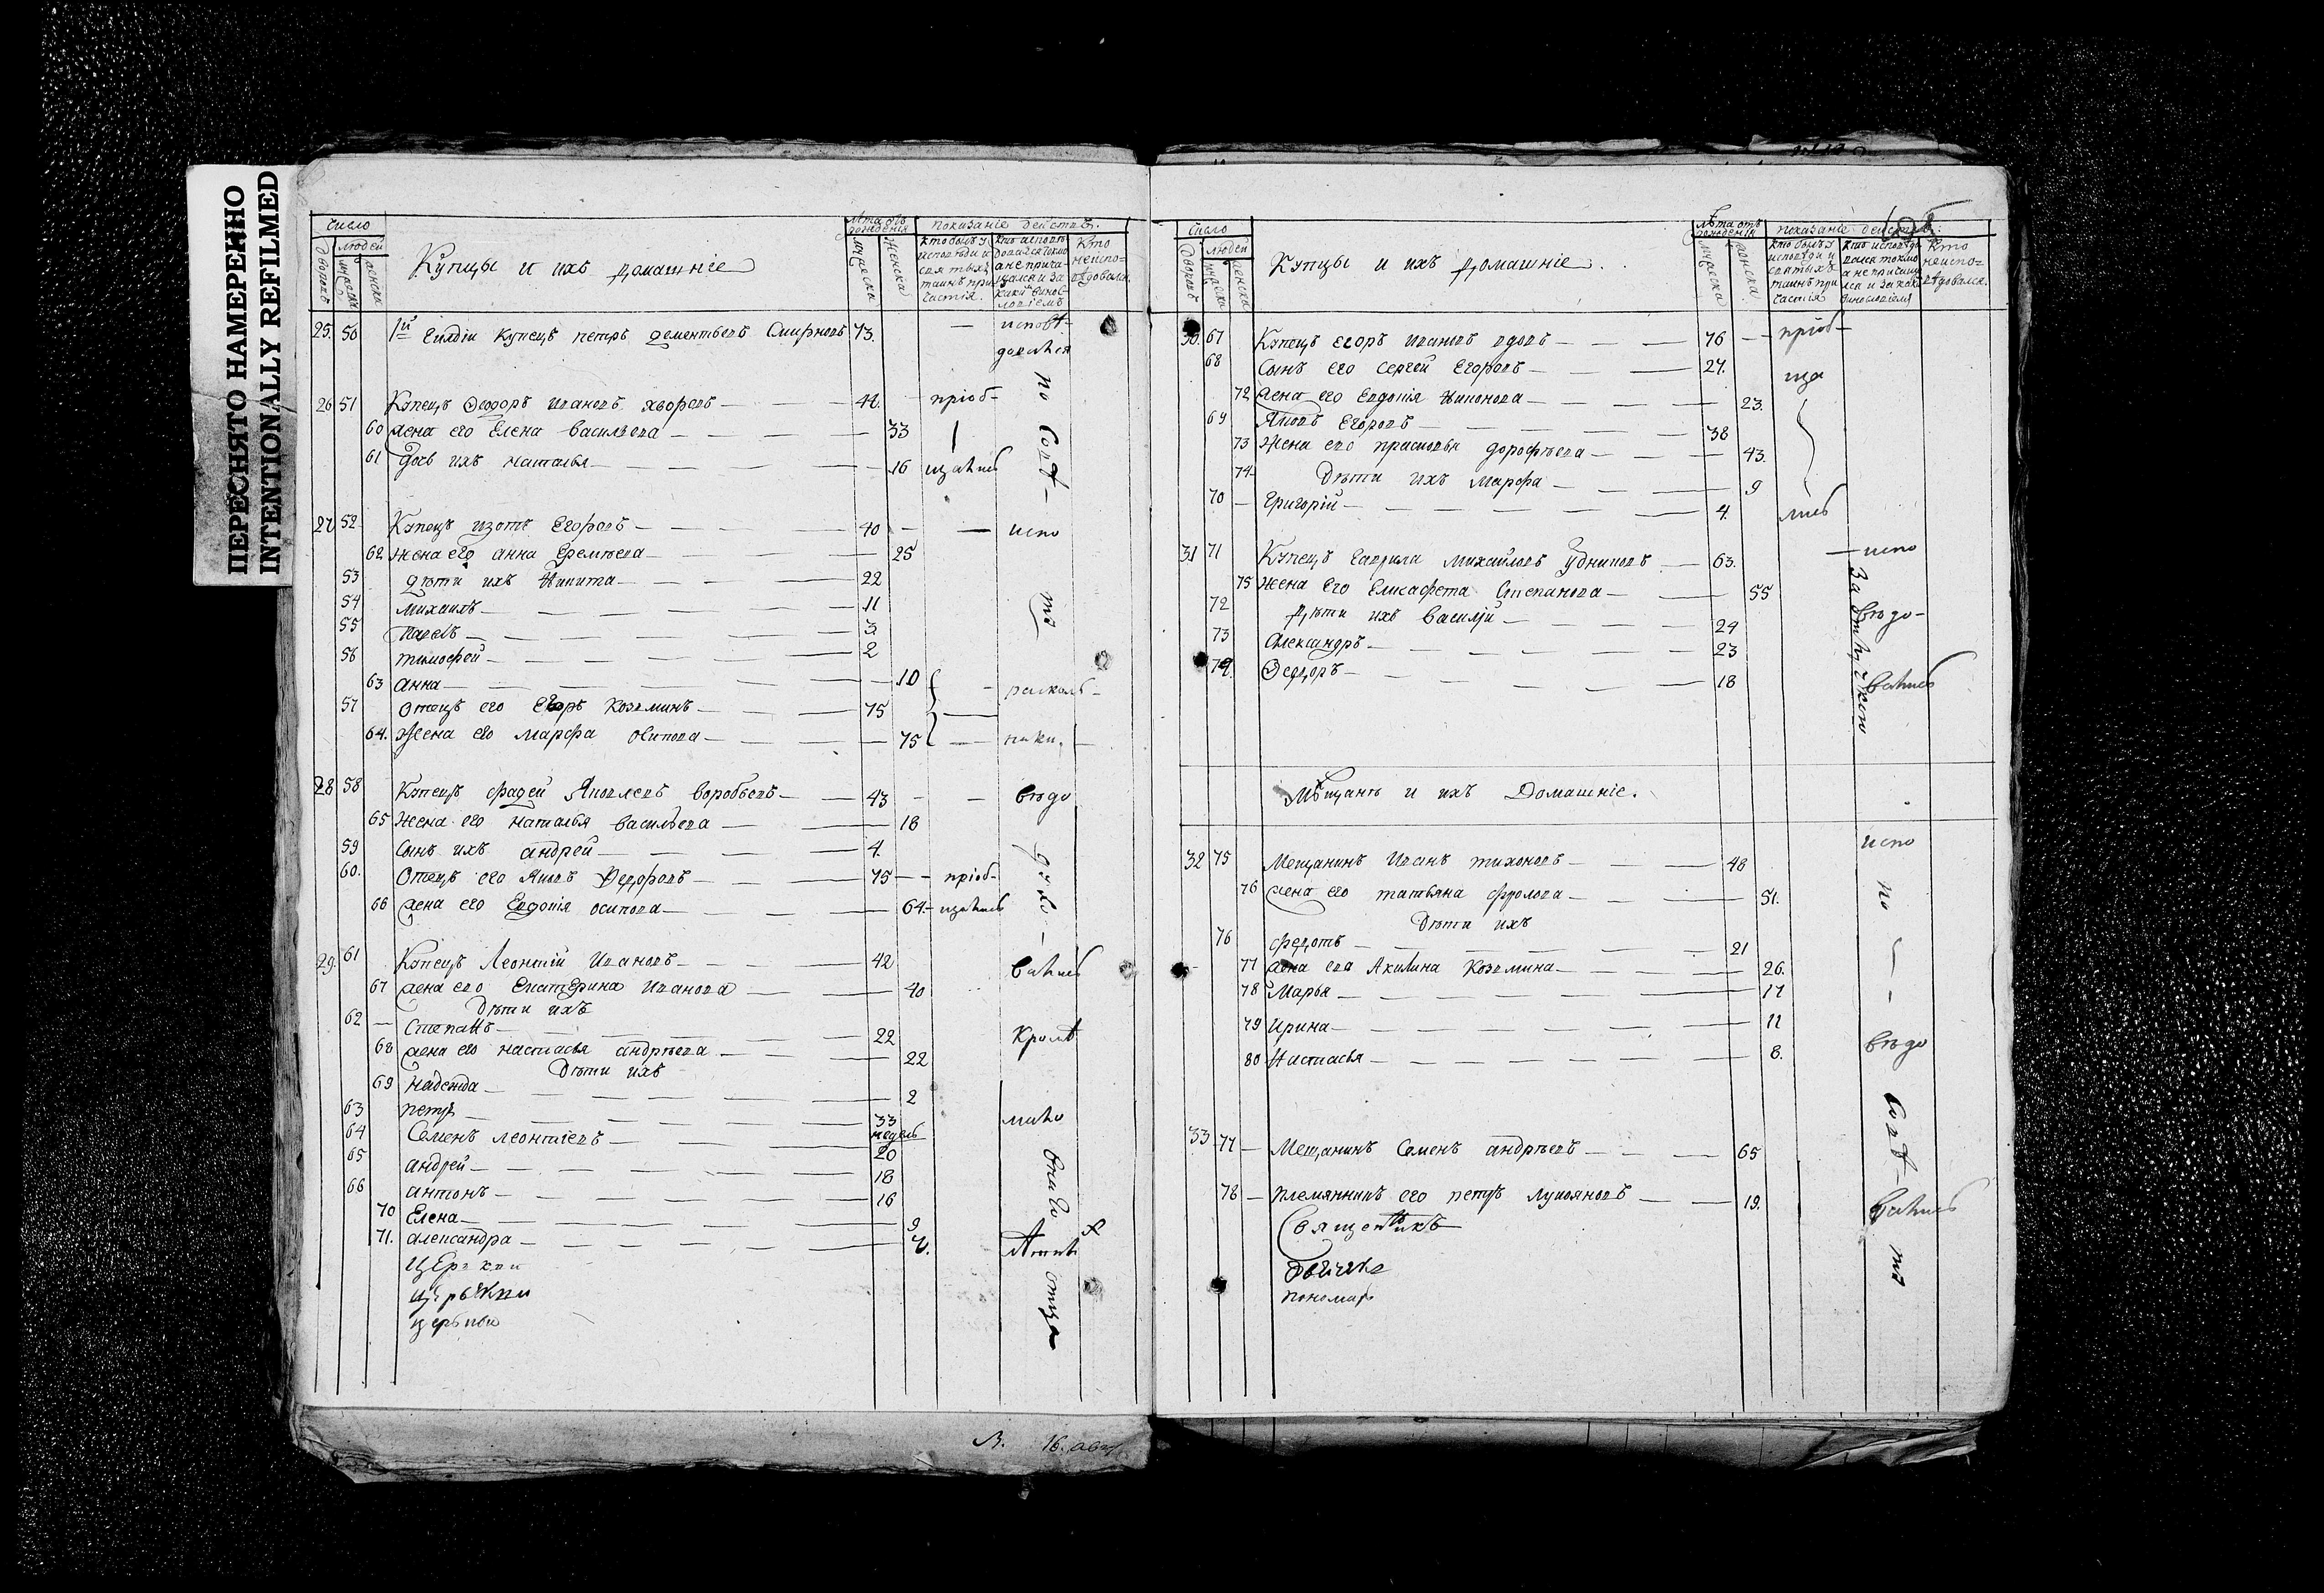 ПЕРЕСНЯТО НАМЕРЕННО
INTENTIONALLY REFILMED
число
людей
дворовъ
мужеска
женска
Купцы и ихъ домашніе
Лѣта отъ рожденія
мужеска
женска
Показаніе действъ.
Кто былъ у исповѣди и святыхъ таинъ причастія.
Кто исповѣдовался токмо а не причащался и за какимъ винословіемъ
Кто неисповѣдовался.
25. 50 1й Гилдіи Купецъ петръ дементьевъ Смирновъ 73. — исповѣ-
довался
по совѣ-
26 51 Купецъ Феодоръ Ивановъ 44. пріоб-
60 жена его Елена васильева 33
61 дочь ихъ наталья 16 щались
27 52 Купецъ изотъ Егоровъ 40 — испо
62 жена его анна Еремѣева 25
53 дѣти ихъ Никита 22
54 михаилъ 11
ту
55 Павелъ 3
56 тимофей 2
63 анна 10
расколь-
57 Отецъ его Егоръ Козминъ 75
64. Жена его марфа Осипова 75 ники.
28 58 Купецъ фадей Яковлевъ воробьевъ 43 вѣдо
65 жена его наталья васильева 18
59 сынъ ихъ андрей 4.
духо-
60. Отецъ его Яковъ Федоровъ 75 пріоб-
66 жена его Евдокія осипова 64. щались
29. 61 Купецъ Леонтій Ивановъ 42 вались
67 жена его Екатерина Иванова 40
Дѣти ихъ
62 Степанъ 22 кромѣ
68 жена его настасья андрѣева 22
Дѣти ихъ
69 надежда 2
63 петръ 33 недель
мало
64 Семенъ леонтіевъ 20
65 андрей 18
66 антонъ 16
70 Елена 9
71. александра
лѣтнѣ
отца
церкви
церькви
церькви
16.
число
людей
дворовъ
мужеска
женска
Купцы и ихъ домашніе.
Лѣта отъ рожденія
мужеска
женска
показаніе действъ.
Кто былъ у исповѣди и святыхъ таинъ причастія
Кто исповѣдовался токмо а не причащался и за какимъ винословіемъ
Кто неисповѣдовался.
30. 67 Купецъ егоръ ивановъ вдовъ 76 — пріоб-
68 Сынъ его Сергей Егоровъ 27.
ща
72 жена его Евдокія Никонова 23.
69 Яковъ Егоровъ 38
73 жена его прасковья дорофѣева 43.
74 Дѣти ихъ марфа 9
70 Григорій 4.
лись
31 71 Купецъ гаврила михайловъ 63. — испо
За отлучкою
75 жена его Елисафета Степанова 55
72 Дѣти ихъ василій 24
вѣдо-
73 Александръ 23
74. Федоръ 18
вались
Мѣщанѣ и ихъ Домашніе.
испо
32 75 Мещанинъ Иванъ тихоновъ 48
76 жена его татьяна фролова 51.
по
Дѣти ихъ
76 федотъ 21
77 жена его Акилина Козмина 26.
78 Марья 17
79 Ирина 11
80 Настасья 8.
вѣдо
совѣ-
33 77 Мещанинъ Семенъ андрѣевъ 65
78 племянникъ его петръ лукояновъ 19.
вались
ту
Священникъ
пономарь